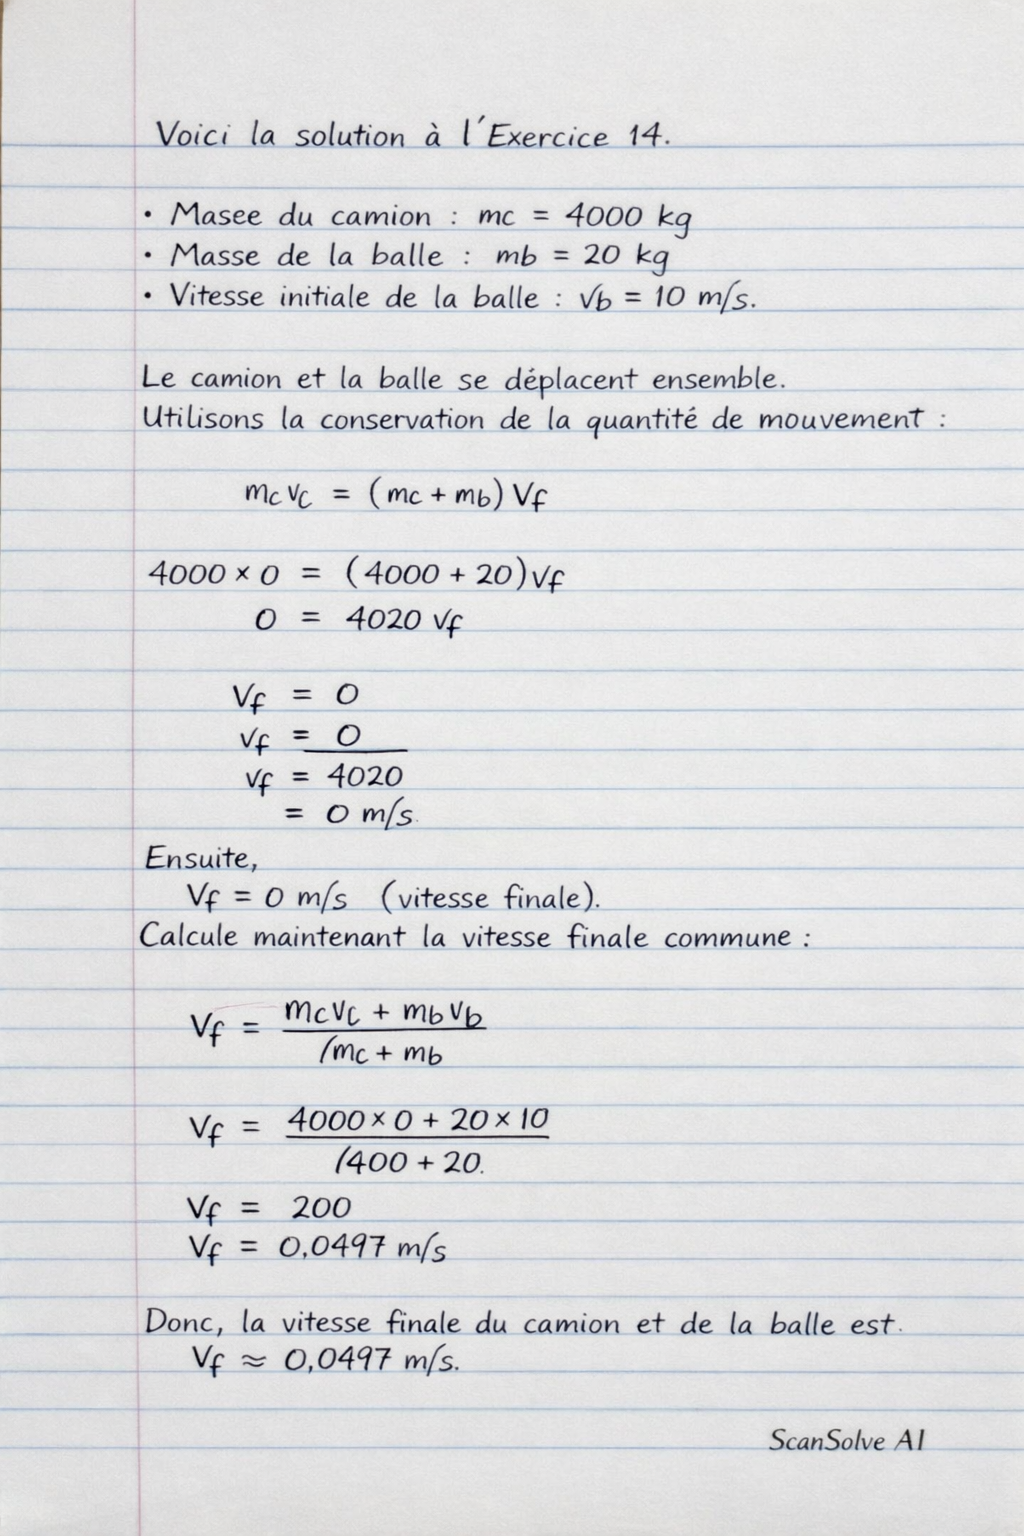 Voici la solution à l'Exercice 14.
• Masee du camion : mc = 4000 kg
• Masse de la balle : mb = 20 kg
• Vitesse initiale de la balle : vb = 10 m/s.
Le camion et la balle se déplacent ensemble.
Utilisons la conservation de la quantité de mouvement :
mcvc = (mc + mb) Vf
4000 × 0 = (4000 + 20)vf
0 = 4020 vf
Vf = 0
vf = 0
vf = 4020
= 0 m/s.
Ensuite,
Vf = 0 m/s (vitesse finale).
Calcule maintenant la vitesse finale commune :
Vf = mcvc + mbvb
/mc + mb
Vf = 4000 × 0 + 20 × 10
/400 + 20.
Vf = 200
Vf = 0,0497 m/s
Donc, la vitesse finale du camion et de la balle est.
Vf ≈ 0,0497 m/s.
ScanSolve AI